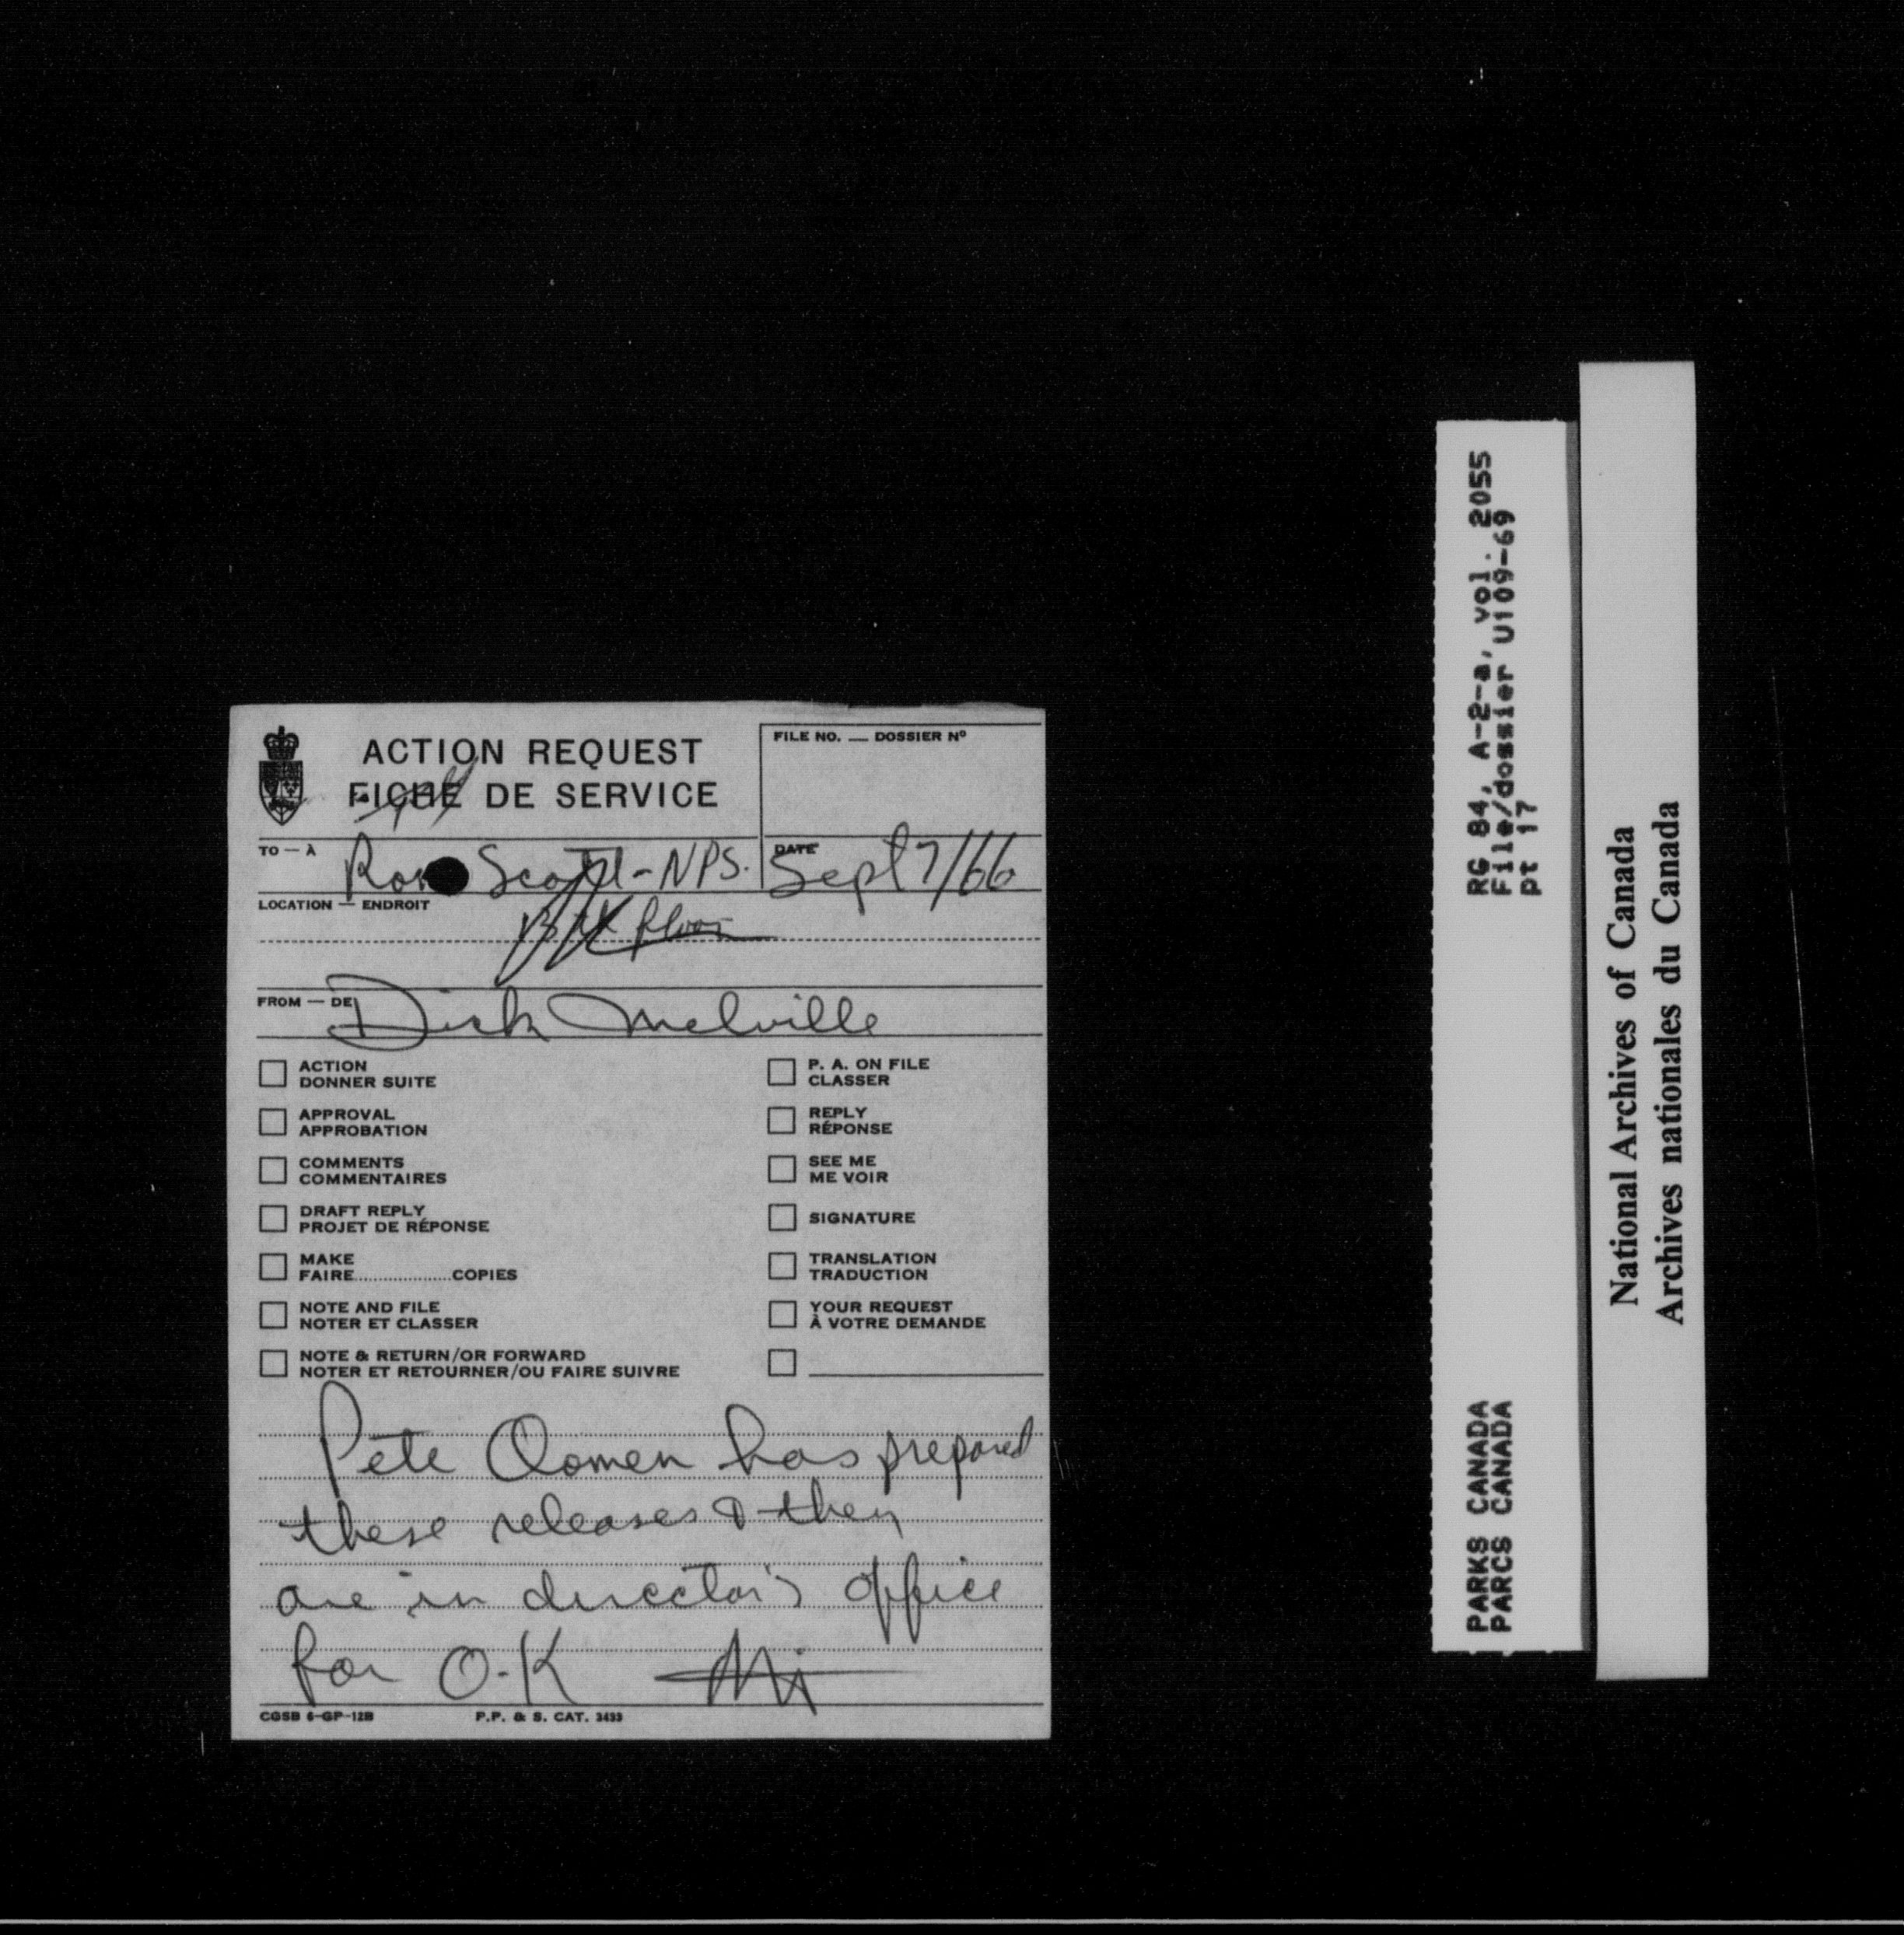 ACTION REQUEST
FICHE DE SERVICE
FILE NO. — DOSSIER Nº
TO — À
Scott - NPS.
DATE
Sept 7/66
LOCATION — ENDROIT
floor
FROM — DE
Dick Melville
ACTION
DONNER SUITE
APPROVAL
APPROBATION
COMMENTS
COMMENTAIRES
DRAFT REPLY
PROJET DE RÉPONSE
MAKE
FAIRE....................COPIES
NOTE AND FILE
NOTER ET CLASSER
NOTE & RETURN/OR FORWARD
NOTER ET RETOURNER/OU FAIRE SUIVRE
P. A. ON FILE
CLASSER
REPLY
RÉPONSE
SEE ME
ME VOIR
SIGNATURE
TRANSLATION
TRADUCTION
YOUR REQUEST
À VOTRE DEMANDE
Pete Oomen has prepared
these releases & they
are in director's office
for O.K
CGSB 6-GP-12B P.P. & S. CAT. 3433
RG 84, A-2-a, vol. 2055
File/dossier U109-69
pt 17
PARKS CANADA
PARCS CANADA
National Archives of Canada
Archives nationales du Canada